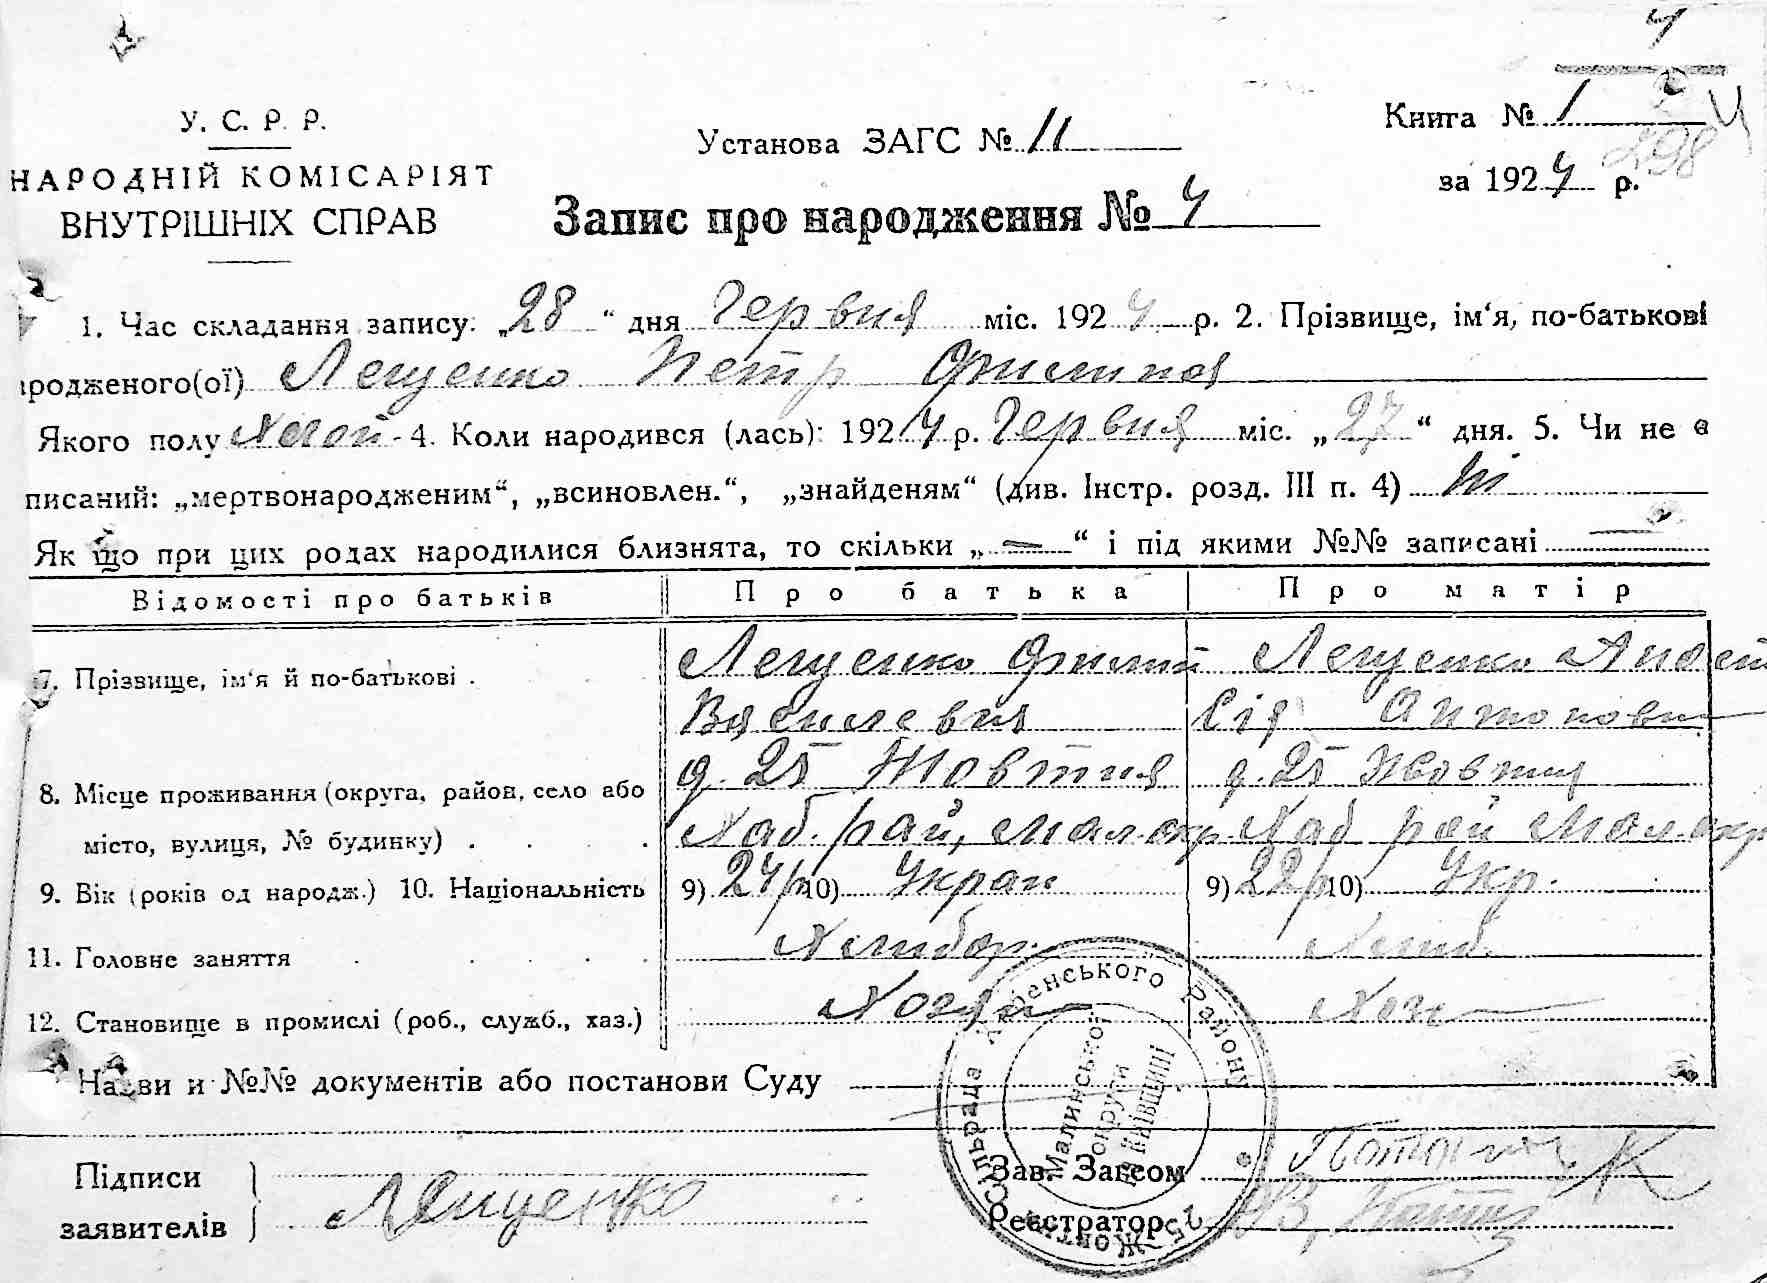 4
У. С. Р. Р.
НАРОДНІЙ КОМІСАРІЯТ
ВНУТРІШНІХ СПРАВ
Установа ЗАГС № 11
Книга № 1
за 1924 р.
Запис про народження № 4
1. Час складання запису: „28“ дня Червня міс. 1924 р. 2. Прізвище, ім‘я, по-батькові
ародженого(ої) Лещенко Петр Филипов
Якого полу 4. Коли народився (лась): 1924 р. Червня міс. „27“ дня. 5. Чи не є
писаний: „мертвонародженим“, „всиновлен.“, „знайденям“ (див. Інстр. розд. III п. 4) Ні
Як що при цих родах народилися близнята, то скільки „—“ і під якими №№ записані —
Відомості про батьків Про батька Про матір
7. Прізвище, ім‘я й по-батькові . Лещенко Филип Лещенко Анаст
Василевич сія Антоновн
8. Місце проживання (округа, район, село або д. 25 Жовтня д. 25 Жовтня
місто, вулиця, № будинку) . . . . Хаб. рай, Мал. окр. Хаб рай Мал. окр
9. Вік (років од народж.) 10. Національність 9) 24 р 10) Украин 9) 22 р 10) Укр.
11. Головне заняття . . . . . Хлибор. Хлиб.
12. Становище в промислі (роб., служб., хаз.) Хозяин Хоз
Назви и №№ документів або постанови Суду
Підписи
заявителів
Лещенко
Зав. Загсом
Реєстратор
Сільрада Хабенського Району
25 Жовтня
Малинської
округи
на Київщині